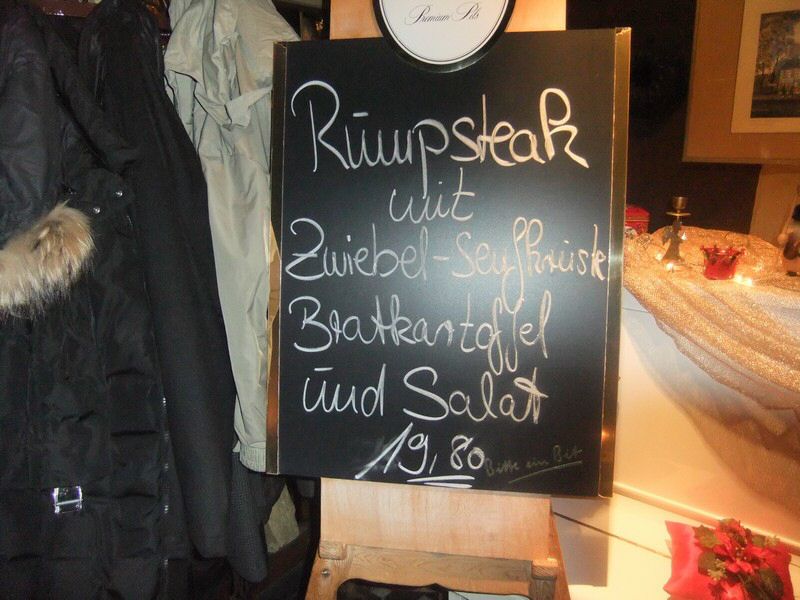 Premium Pils
Rumpsteak
mit
Zwiebel-Senfkruste
Bratkartoffel
und Salat
19,80
Bitte ein Bit